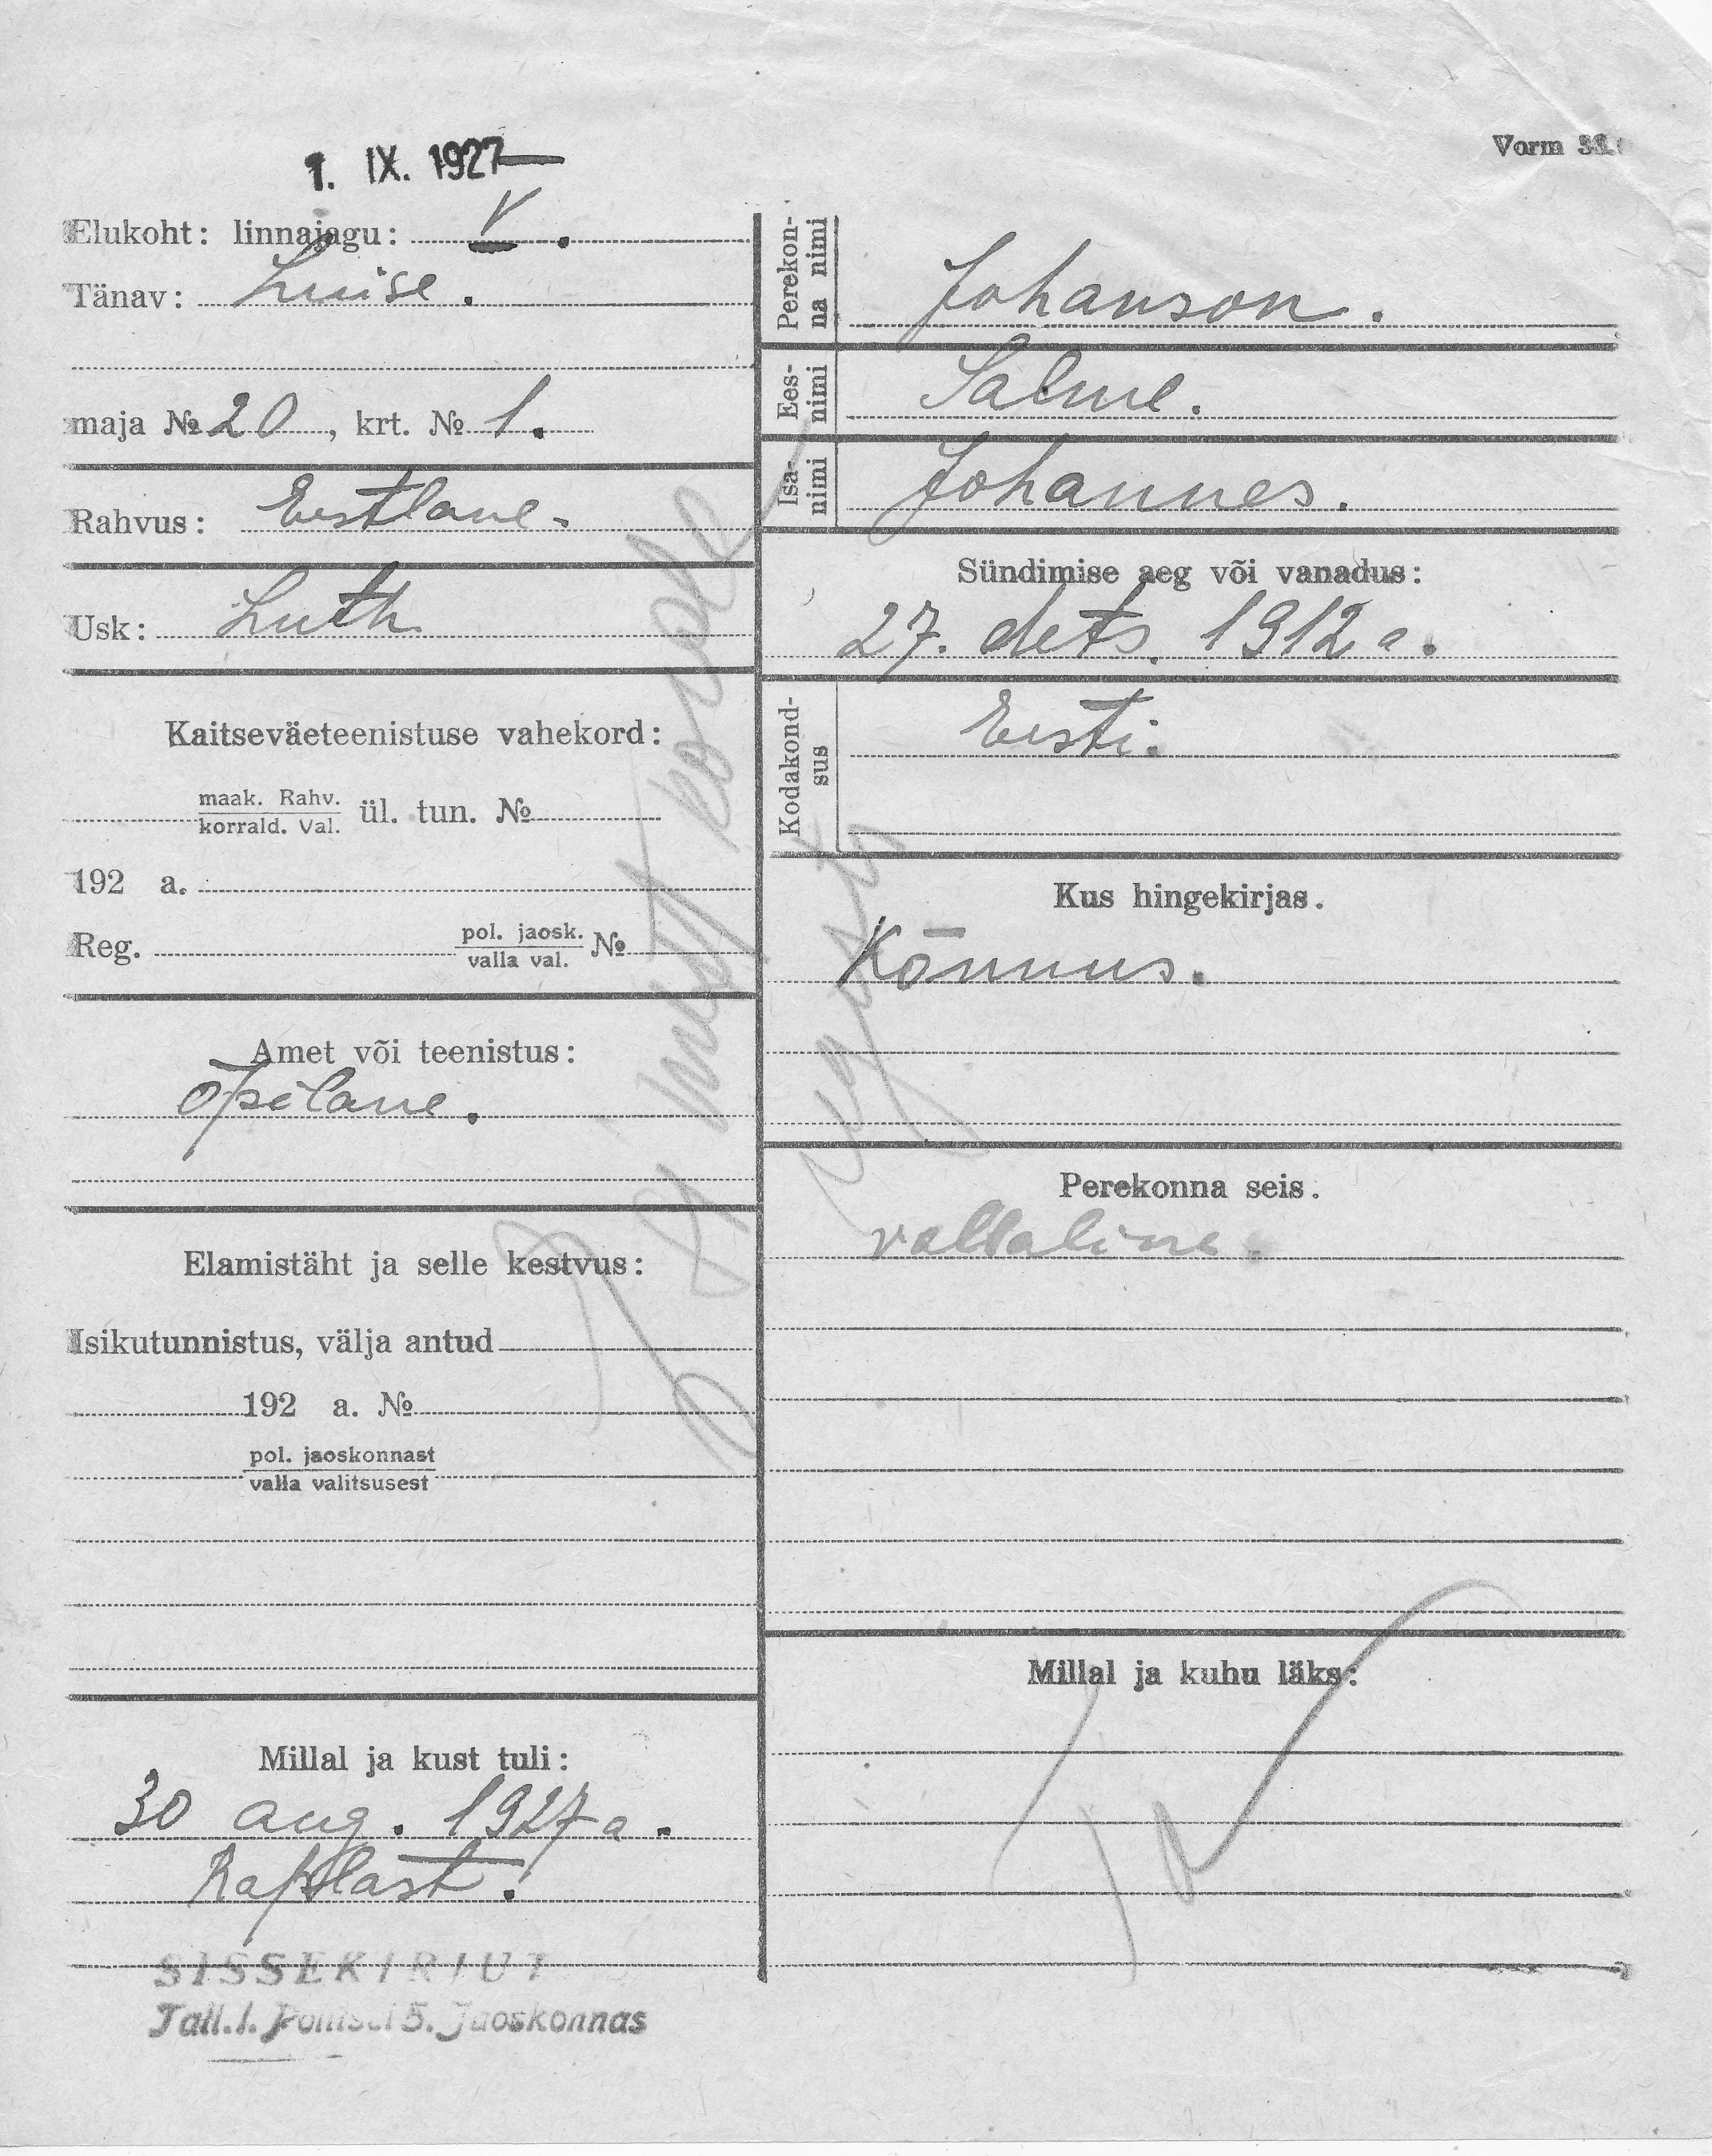 1. IX. 1927
Vorm
Elukoht: linnajagu: V.
Tänav: Luise.
maja № 20, krt. № 1.
Rahvus: Eestlane.
Usk: Luth
Kaitseväeteenistuse vahekord:
maak. Rahv.
korrald. Val.
ül. tun. №
192 a.
Reg. pol. jaosk. №
valla val.
Amet või teenistus:
õpilane.
Elamistäht ja selle kestvus:
Isikutunnistus, välja antud
192 a. №
pol. jaoskonnast
valla valitsusest
Millal ja kust tuli:
30 aug. 1927 a.
Raplast.
SISSEKIRJUT
Tall.l. Politsei 5. Jaoskonnas
Perekonna nimi
Johanson.
Eesnimi
Salme.
Isanimi
Johannes.
Sündimise aeg või vanadus:
27. dets. 1912 a.
Kodakondsus
Eesti.
Kus hingekirjas.
Kõnnus.
Perekonna seis.
vallaline.
Millal ja kuhu läks: